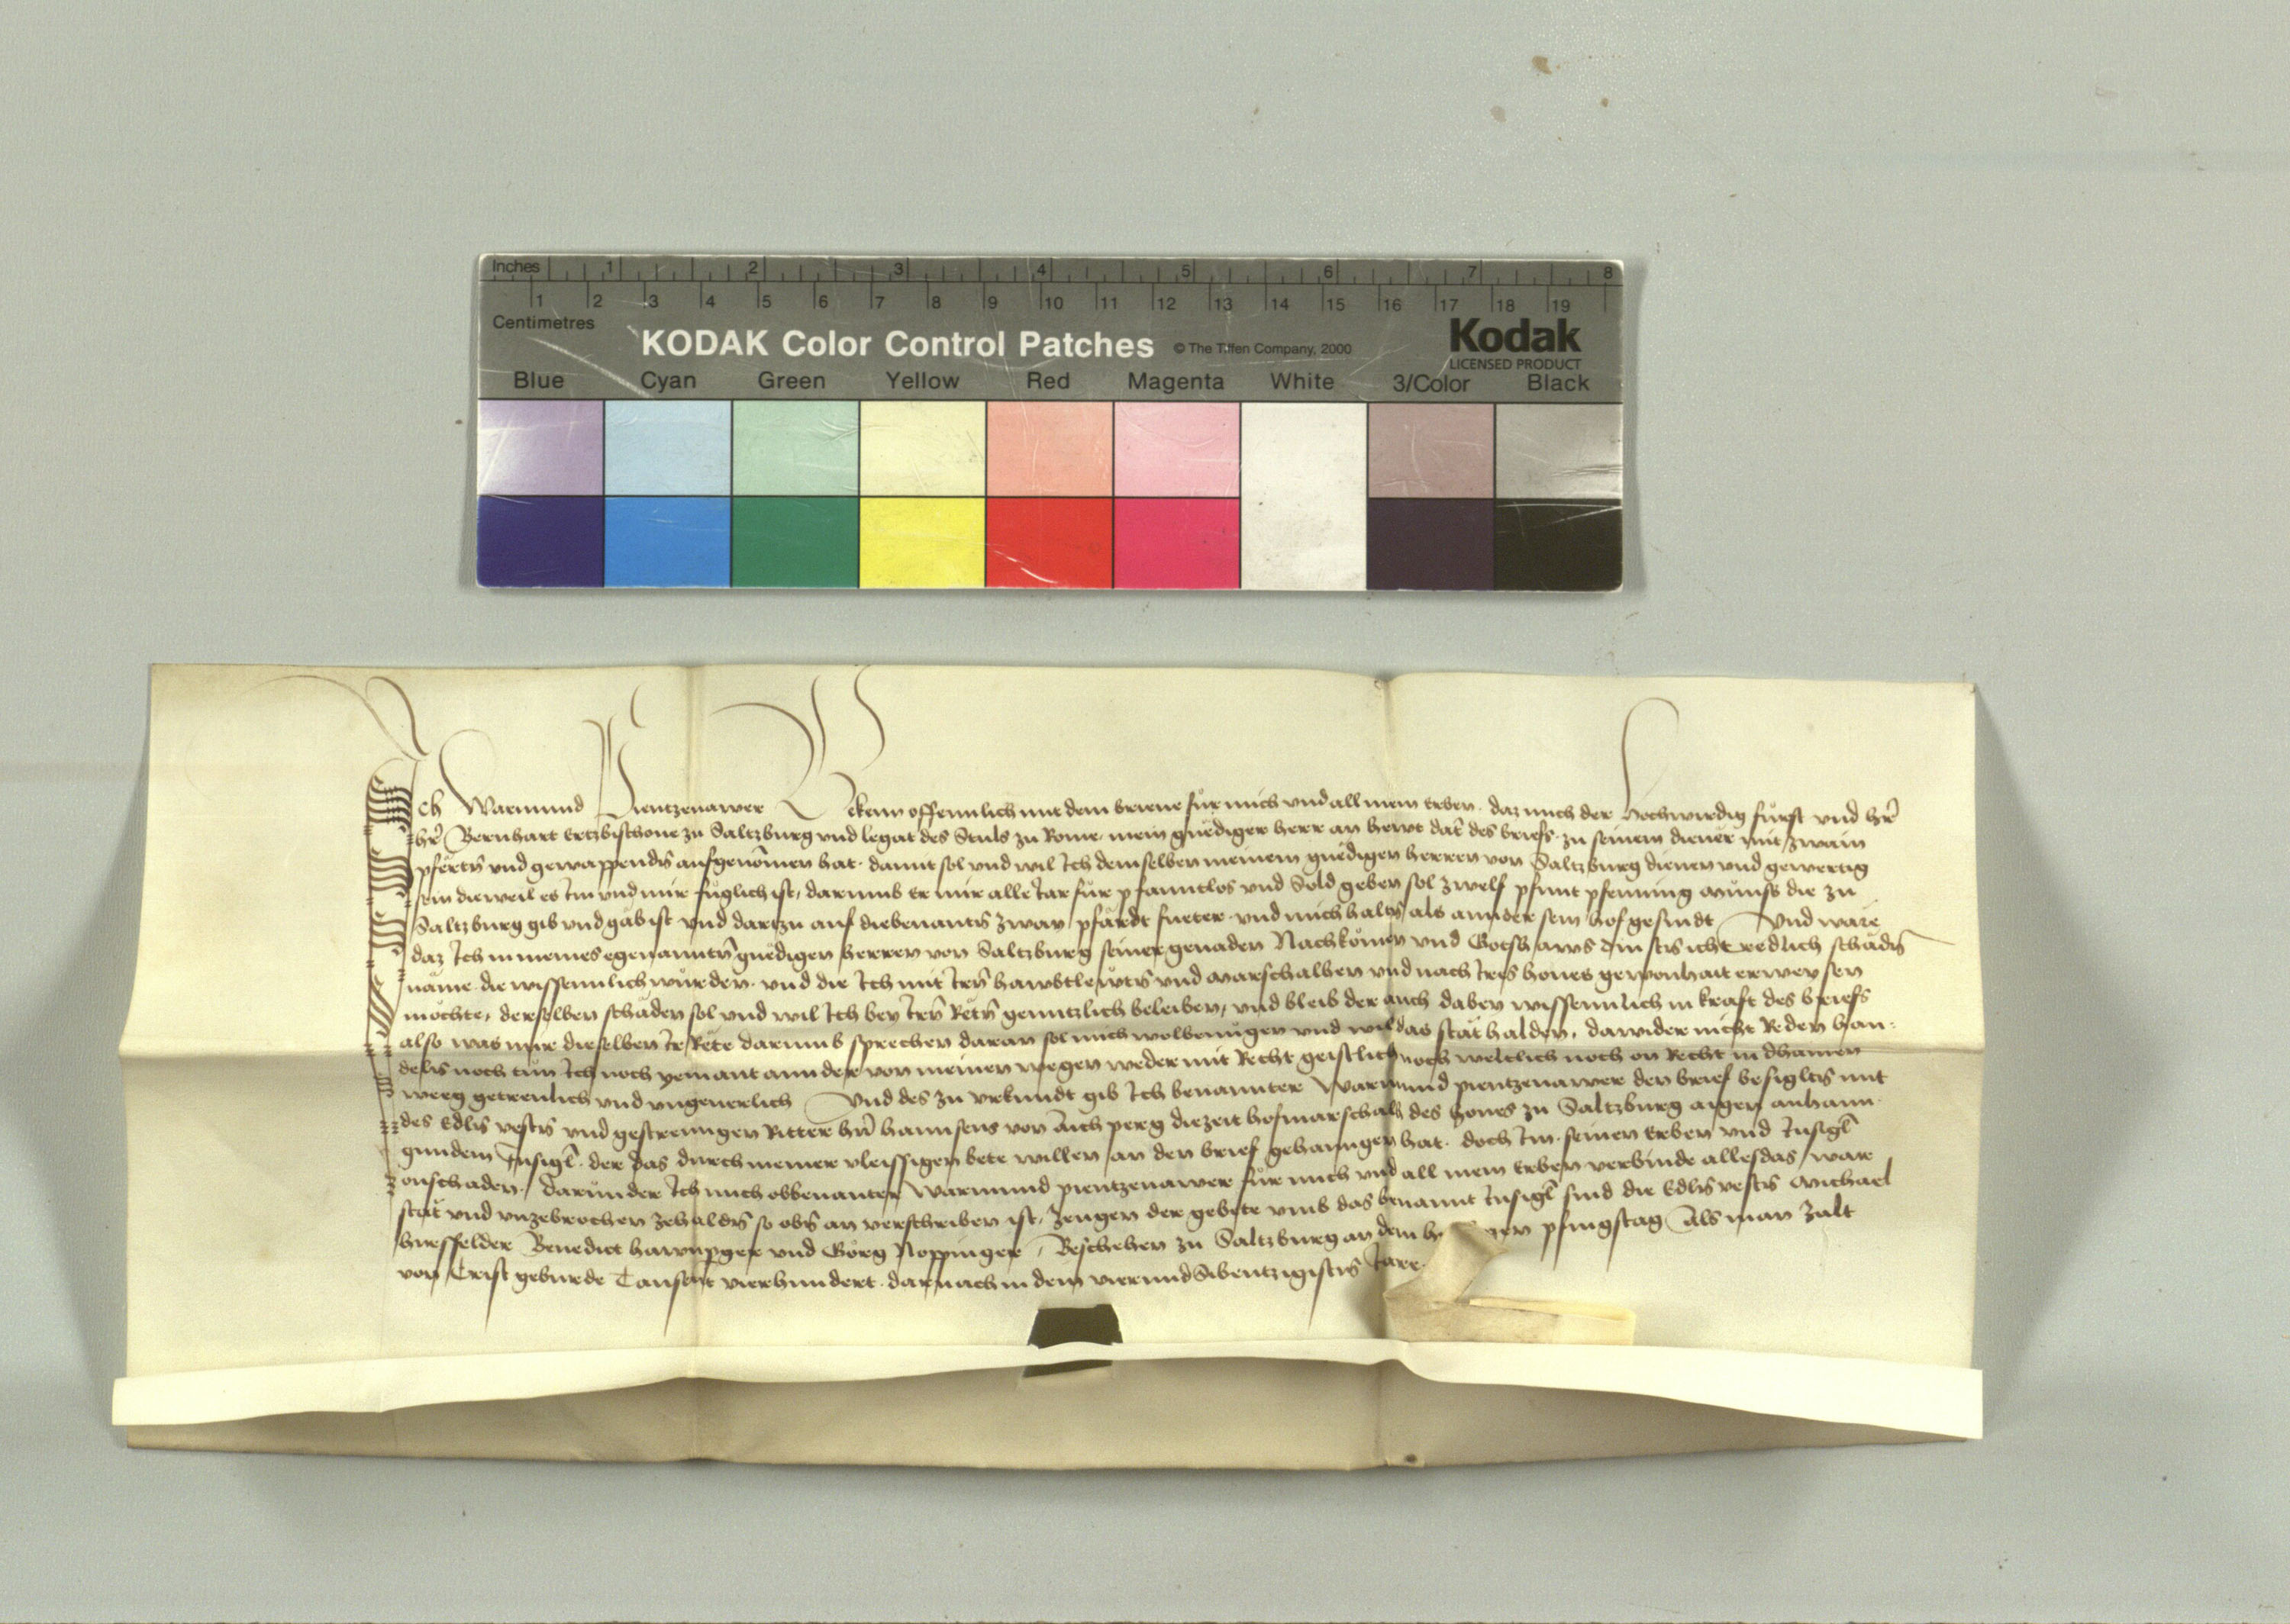 Inches 1 2 3 4 5 6 7 8
1 2 3 4 5 6 7 8 9 10 11 12 13 14 15 16 17 18 19
Centimetres
KODAK Color Control Patches © The Tiffen Company, 2000 Kodak
LICENSED PRODUCT
Blue Cyan Green Yellow Red Magenta White 3/Color Black
Ich Warmund Pientzenawer Bekenn offennlich mit dem brieue für mich vnd all mein erben. daz mich der Hochwirdig fürst vnd her
her Bernhart Ertzbischoue zu Saltzburg vnd legat des Stuls zu Rome mein gnediger herr an hewt dat des briefs. zu seinem diener mit zwain
pferten vnd gewappendn aufgenomen hat. damit sol vnd wil Ich demselben meinem gnedigen herren von Saltzburg dienen vnd gewertig
sein dieweil es Im vnd mir füglich ist, darumb er mir alle Iar für pfanntlos vnd Sold geben sol zwelf pfunt pfenning münss die zu
Saltzburg gib vnd gäb ist vnd dartzu auf diebenantn zway pfärdt fueter. vnd mich haltn als annder sein hofgesindt Vnd wäre
daz Ich in meines egenanntn gnedigen herren von Saltzburg seiner genaden Nachkomen vnd Gotshaws dinstn icht redlich schädn
näme. die wissennlich würden. vnd die Ich mit Irn hawbtlewtn vnd marschalhen vnd nach Irs houes gewonhait erweysen
möchte, derselben schäden sol vnd wil Ich bey Irn Retn genntzlich beleiben, vnd bleib der auch dabey wissennlich in kraft des briefs
also was mir dieselben Ir Rete darumb sprechen daran sol mich wolbenügen vnd wil das stät halden, dawider nicht Reden han-
deln noch tun Ich noch yemant annder von meinen wegen weder mit Recht geistlich noch weltlich noch on Recht in dhainen
weeg getreulich vnd vngeuerlich Vnd des zu vrkundt gib Ich benannter Warmund pientzenawer den brief besigltn mit
des Edln vestn vnd gestrenngen Ritter hern hannsens von Aich perg diezeit hofmarschalh des houes zu Saltzburg aigen anhann-
gundem Insigl. der das durch meiner vleissigen bete willen an den brief gehanngen hat. doch Im. seinen Erben vnd Insigl
onschaden. Darunder Ich mich obbenanter Warmund pientzenawer für mich vnd all mein erben verbinde alles das war
stät vnd vnzebrochen zehaldn so obn an verschriben ist, Zeugen der gebete vmb das benannt Insigl sind die Edln vestn Michael
Benedict vnd Görg Noppinger, Beschehen zu Saltzburg an dem pfingstag Als man Zalt
von Crist geburde Tausent vierhundert. darnach in dem vierundSibentzigistn Iare.